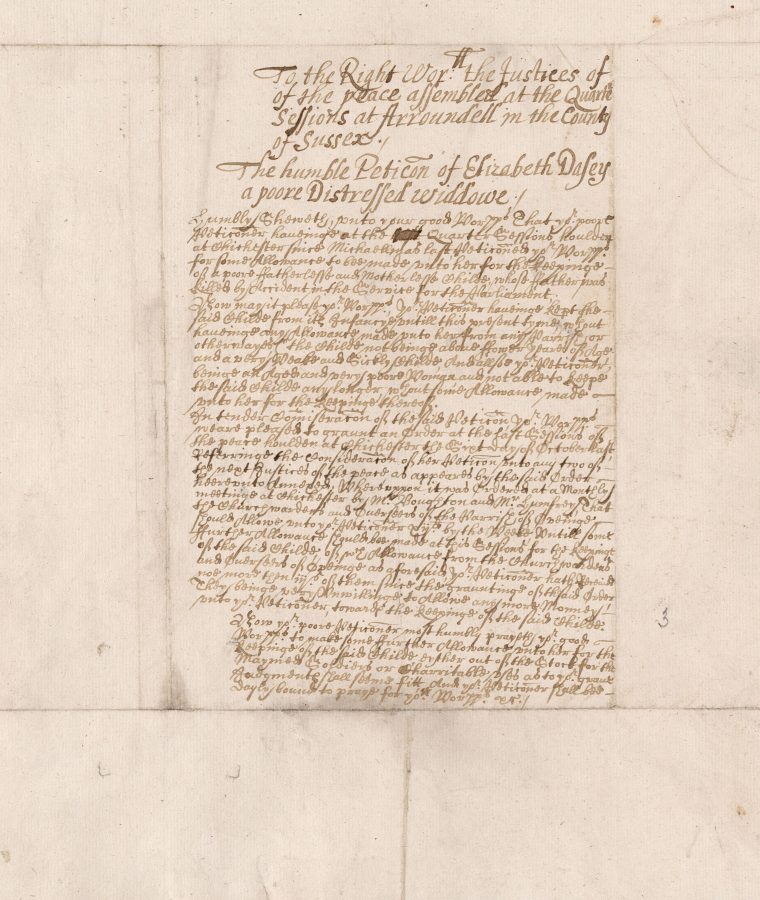 To the Right Wor:ll the Justices of
of the peace assembled at the Quarter
Sessions at Arroundell in the County
of Sussex ./
The humble Peticōn of Elizabeth Dasey
a poore Distressed widdowe ./
Humbly Sheweth, unto your good Worpps That yor. poore
Peticōner haveinge at the Quarter Sessions houlden
at Chichester since Michaellmas last Peticōned yor. Worpps.
for some Allowance to bee made unto her for the keepinge
of a poore ffatherlesse and Motherlesse Childe, whose ffather was
killed by Accident in the Service for the Parliament
Now may it please yor. Worpps. Yor. Peticōner haveinge kept the
said Childe from its Infancye untill this present tyme, wthout
haveinge any Allowance made unto her from any Parrish or
otherwayes the Childe not beinge above ffower yeares of Age
and a very Weake and Sickly Childe And allsoe yor. Peticōner
beinge an Aged and very poore Woman and not able to keepe
the said Childe any longer, wthout some Allowance made
unto her for the keepinge thereof
In tender Comiseracōn of the said Peticōn Yor. Worpps
weare pleased to graunt an Order at the last Sessions of
the peace houlden at Chichester the Sixt day of October last
Referringe the Consideracōn of her Peticōn unto any two of
the next Justices of the peace as appeares by the said Order
heereunto Annexed, Whereuppon it was Ordered at a Monthly
meetinge at Chichester by Mr. Boughton and Mr. That
the Churchwardens and Overseers of the Parrish of
should Allowe unto yor. Peticōner by the Weeke untill some
ffurther Allowance should bee made at this Sessions for the keepinge
of the said Childe, of wch Allowance from the Churchwardens
and Overseers of as aforesaid yor. Peticōner hath Received
noe more then of them since the grauntinge of the said Order
They beinge very Unwillinge to Allowe any more Money
unto yor. Peticōner towards the keepinge of the said Childe.
Now yor. poore Peticōner most humbly prayeth yor. good
Worpps. to make some ffurther Allowance unto her for the
keepinge of the said Childe eyther out of the Stock for the
Maymed Soldiers or Charritable uses as to yor. grave
Judgmente shall seeme fitt And yor. Peticōner shall bee
dayly bound to praye for yor. Worpps. &c ./
3